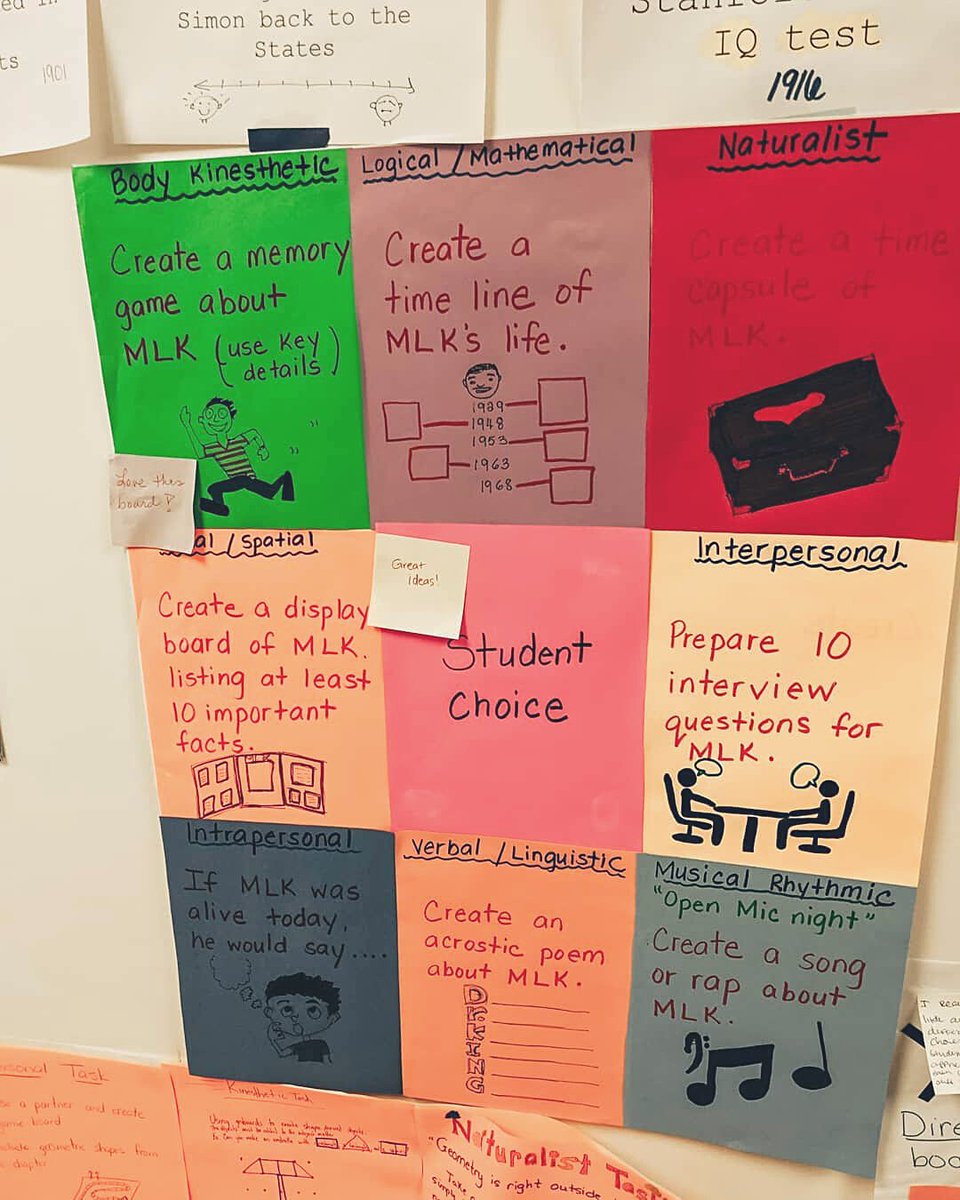 Simon back to the
States
1901
IQ test
1916
Body Kinesthetic
Create a memory
game about
MLK (use key
details)
Love this
board!
Logical / Mathematical
Create a
time line of
MLK's life.
1929
1948
1953
1963
1968
Naturalist
Create a time
capsule of
MLK.
/Spatial
Create a display
board of MLK.
listing at least
10 important
facts.
Great
ideas!
Student
Choice
Interpersonal
Prepare 10
interview
questions for
MLK.
Intrapersonal
If MLK was
alive today,
he would say....
Verbal / Linguistic
Create an
acrostic poem
about MLK.
DR.KING
Musical Rhythmic
"Open Mic night"
Create a song
or rap about
MLK.
Task
a partner and create
board
geometric shapes from
Kinesthetic Task
Naturalist
"Geometry is right outside